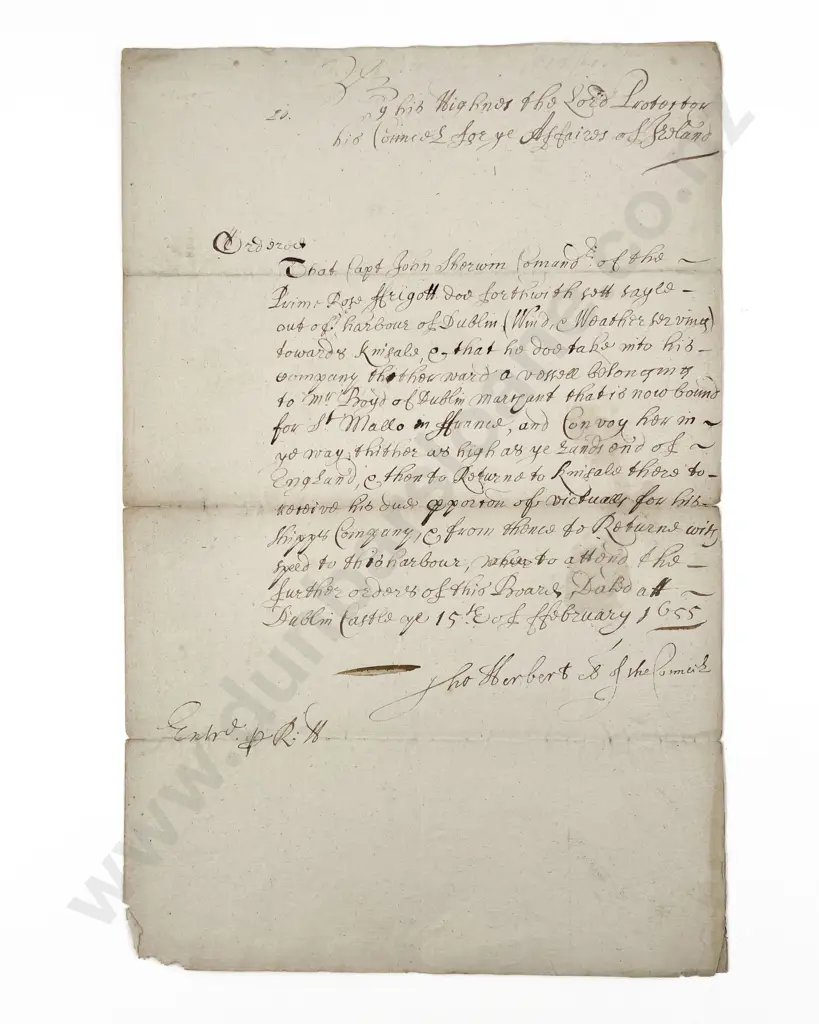 By his Highnes the Lord Protector
his Councel for ye Affaires of Ireland
Ordered
That Capt John Sherwin Comandr. of the
Prime Rose ffrigott doe forthwith sett sayle
out of ye harbour of Dublin (Wind, & Weather serving)
towards Kinsale, & that he doe take into his
company thither ward a vessell belonging
to Mr. Boyd of Dublin marchant that is now bound
for St Mallo in ffrance, and Convoy her in
ye way thither as high as ye Lands end of
England, & then to Returne to Kinsale there to
receive his due pporcon of victualls for his
Shipps Company, & from thence to Returne with
speed to this harbour, to attend the
further orders of this Board, Dated att
Dublin Castle ye 15th of ffebruary 1655
Tho Herbert Cl of the Councill
Entrd. p R: H
www.dunbarsloane.co.nz